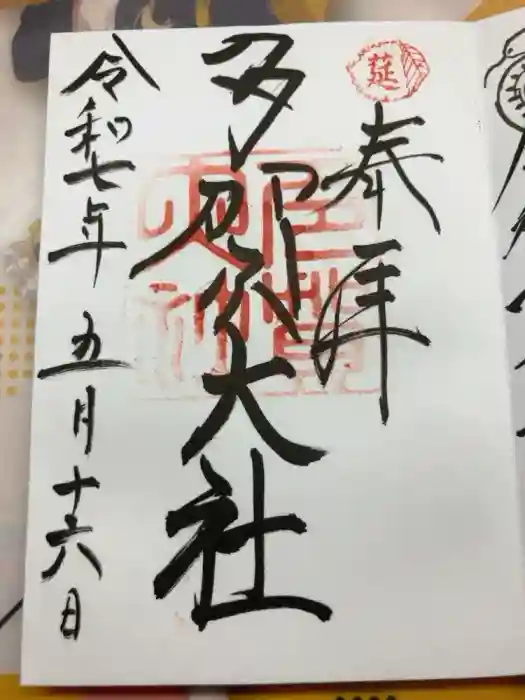 莚
奉拝
多賀大社
令和七年 五月十六日